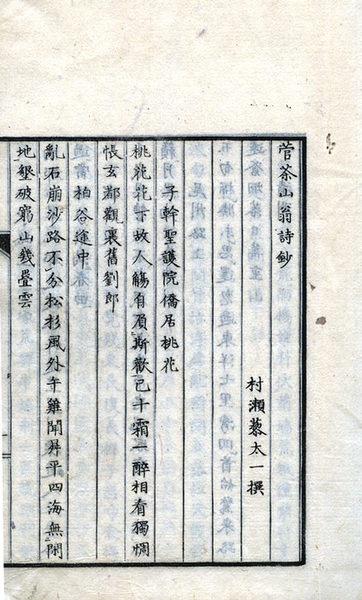 菅茶山翁詩鈔
村瀬藜太一撰
子幹聖護院僑居桃花
桃花花下故人觴有斯歡已霜一醉相看獨惆
悵玄都觀裏舊劉郎
柏谷途中
亂石崩沙路不分松杉風外午雞聞昇平四海無閑
地墾破窮山幾疊雲